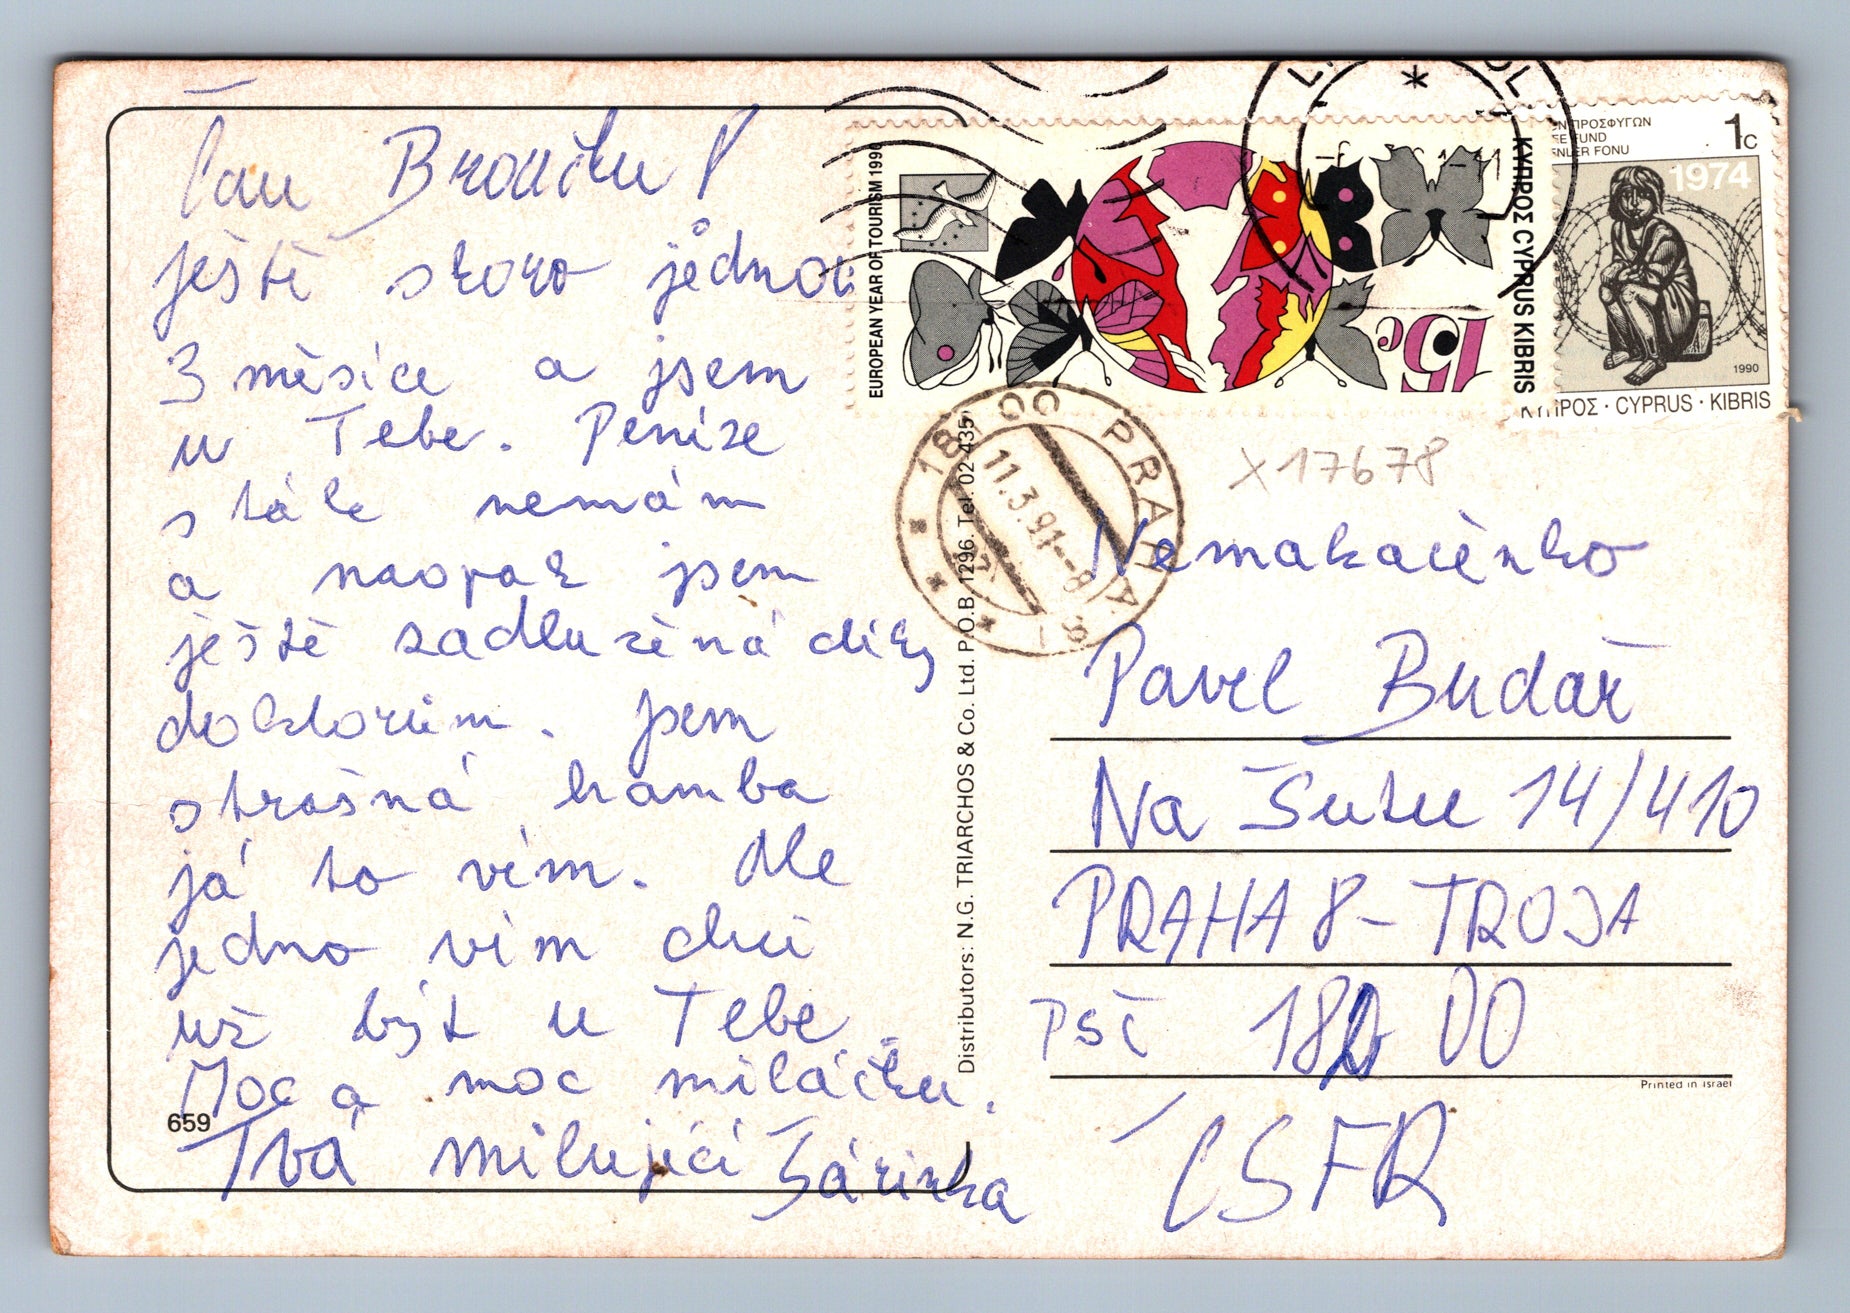 Čau Broučku!
ještě skoro jednou
3 měsíce a jsem
u Tebe. Peníze
stále nemám
a naopak jsem
ještě zadlužená díky
doktorům. jsem
strašná hamba
já to vím. Ale
jedno vím chci
už být u Tebe.
Moc a moc miláčku.
659
Tvá milující Šárinka
EUROPEAN YEAR OF TOURISM 1990
15c
ΚΥΠΡΟΣ CYPRUS KIBRIS
ΠΡΟΣΦΥΓΩΝ
FUND
FONU
1c
1974
1990
ΚΥΠΡΟΣ · CYPRUS · KIBRIS
18100 PRAHA 81
11.3.91-8
X17678
Distributors: N.G. TRIARCHOS & Co. Ltd. P.O.B. 1296. Tel. 02-435
Pavel Budař
Na Šutu 14/410
PRAHA 8 - TROJA
PSČ 182 00
Printed in Israel
ČSFR